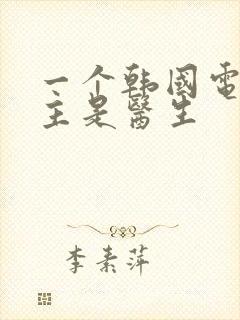 一个韩国電
主是醫生
李素萍